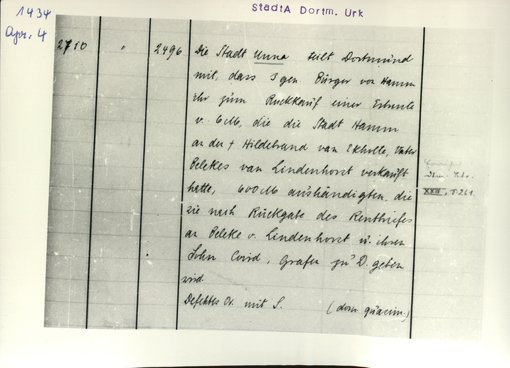 1434
Apr. 4
StadtA Dortm. Urk
2710 " 2496
Die Stadt Unna teilt Dortmund
mit, dass 3 gen Bürger von Hamm
ihr zum Rückkauf einer Erbrente
v. 6 M, die die Stadt Hamm
an den † Hildebrand van, Vater
Peleke van Lindenhorst verkauft
hatte, 600 M aushändigten, die
sie nach Rückgabe des Rentbriefes
an Peleke v. Lindenhorst u. ihren
Sohn Coird, Grafen zu D. geben
wird.
Defektes Or. mit S. (dom. quasim.)
XXII, S. 261.